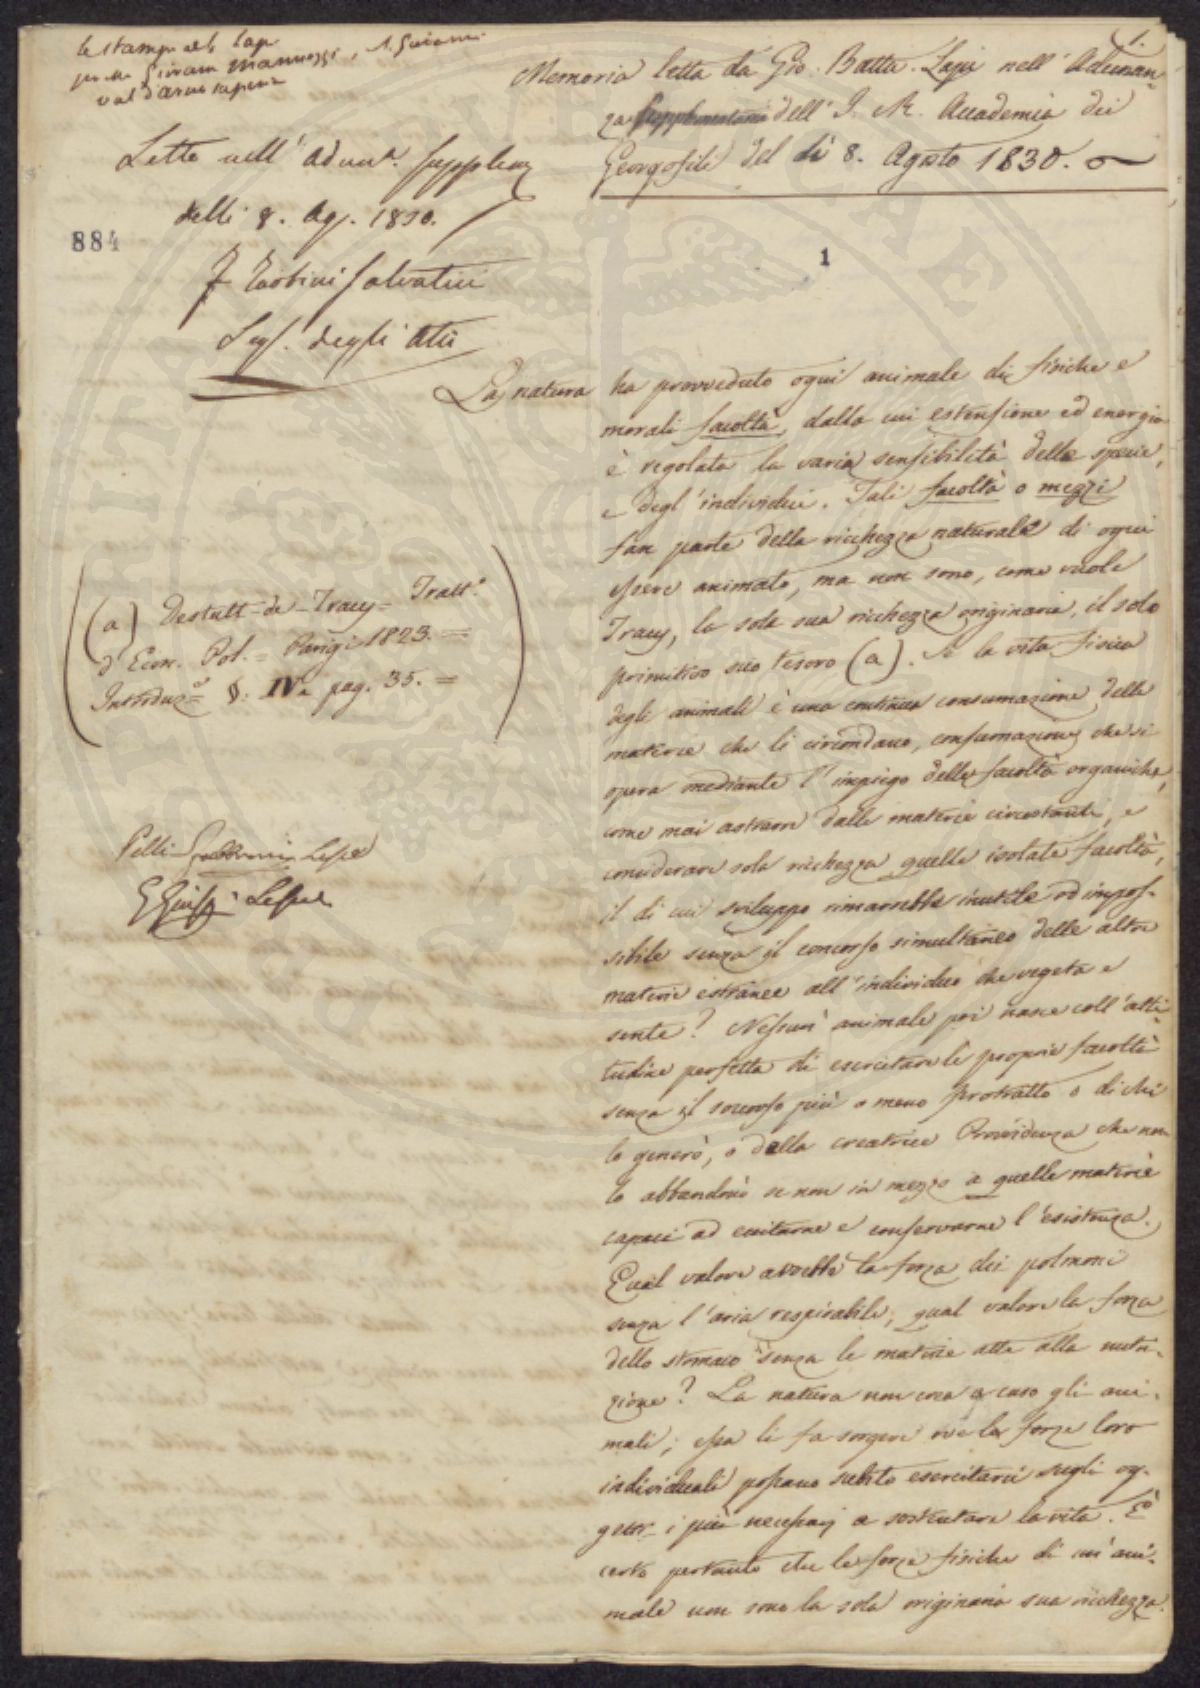 1.
Memoria letta da Gio. Batta. Lapi nell' Adunan-
za dell' I. R. Accademia dei
Georgofili del dì 8. Agosto 1830.
Letta nell' Adun.
delli 8. Ag. 1830.
F. Tartini Salvatici
Seg. degli Atti
884
1
La natura ha provveduto ogni animale di fisiche e
morali facoltà, dalla cui estensione ed energia
è regolata la varia sensibilità delle specie,
e degl' individui. Tali facoltà o mezzi
fan parte della ricchezza naturale di ogni
essere animato, ma non sono, come vuole
Tracy, la sola sua ricchezza originaria, il solo
primitivo suo tesoro (a). Se la vita fisica
degli animali è una continua consumazione delle
materie che li circondano, consumazione che si
opera mediante l' impiego delle facoltà organiche,
come mai astrarre dalle materie circostanti, e
considerare sola ricchezza quelle isolate facoltà,
il di cui sviluppo rimarrebbe inutile ed impos-
sibile senza il concorso simultaneo delle altre
materie estranee all' individuo che vegeta e
sente? Nessun' animale poi nasce coll' atti-
tudine perfetta di esercitare le proprie facoltà
senza il soccorso più o meno protratto o di chi
lo generò, o della creatrice Provvidenza che non
lo abbandonò se non in mezzo a quelle materie
capaci ad eccitarne e conservarne l' esistenza.
Qual valore avrebbe la forza dei polmoni
senza l' aria respirabile; qual valore la forza
dello stomaco senza le materie atte alla nutri-
zione? La natura non crea a caso gli ani-
mali; essa li fa sorgere ove le forze loro
individuali possano subito esercitarsi sugli og-
getti i più necessarj a sostentare la vita. È
certo pertanto che le forze fisiche di un' ani-
male non sono la sola originaria sua ricchezza.
(a) Destutt-de-Tracy= Tratt.º
d' Econ. Pol.= Parigi 1823.=
Introduz.e= §. IV. pag. 35.=